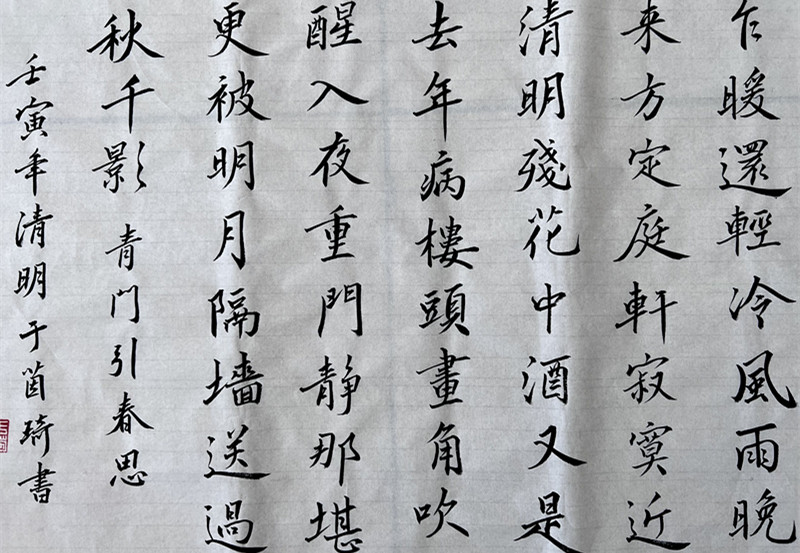 乍暖還輕冷風雨晚
来方定庭軒寂寞近
清明殘花中酒又是
去年病樓頭畫角吹
醒入夜重門静那堪
更被明月隔墙送過
秋千影 青門引春思
壬寅年清明于箇琦書